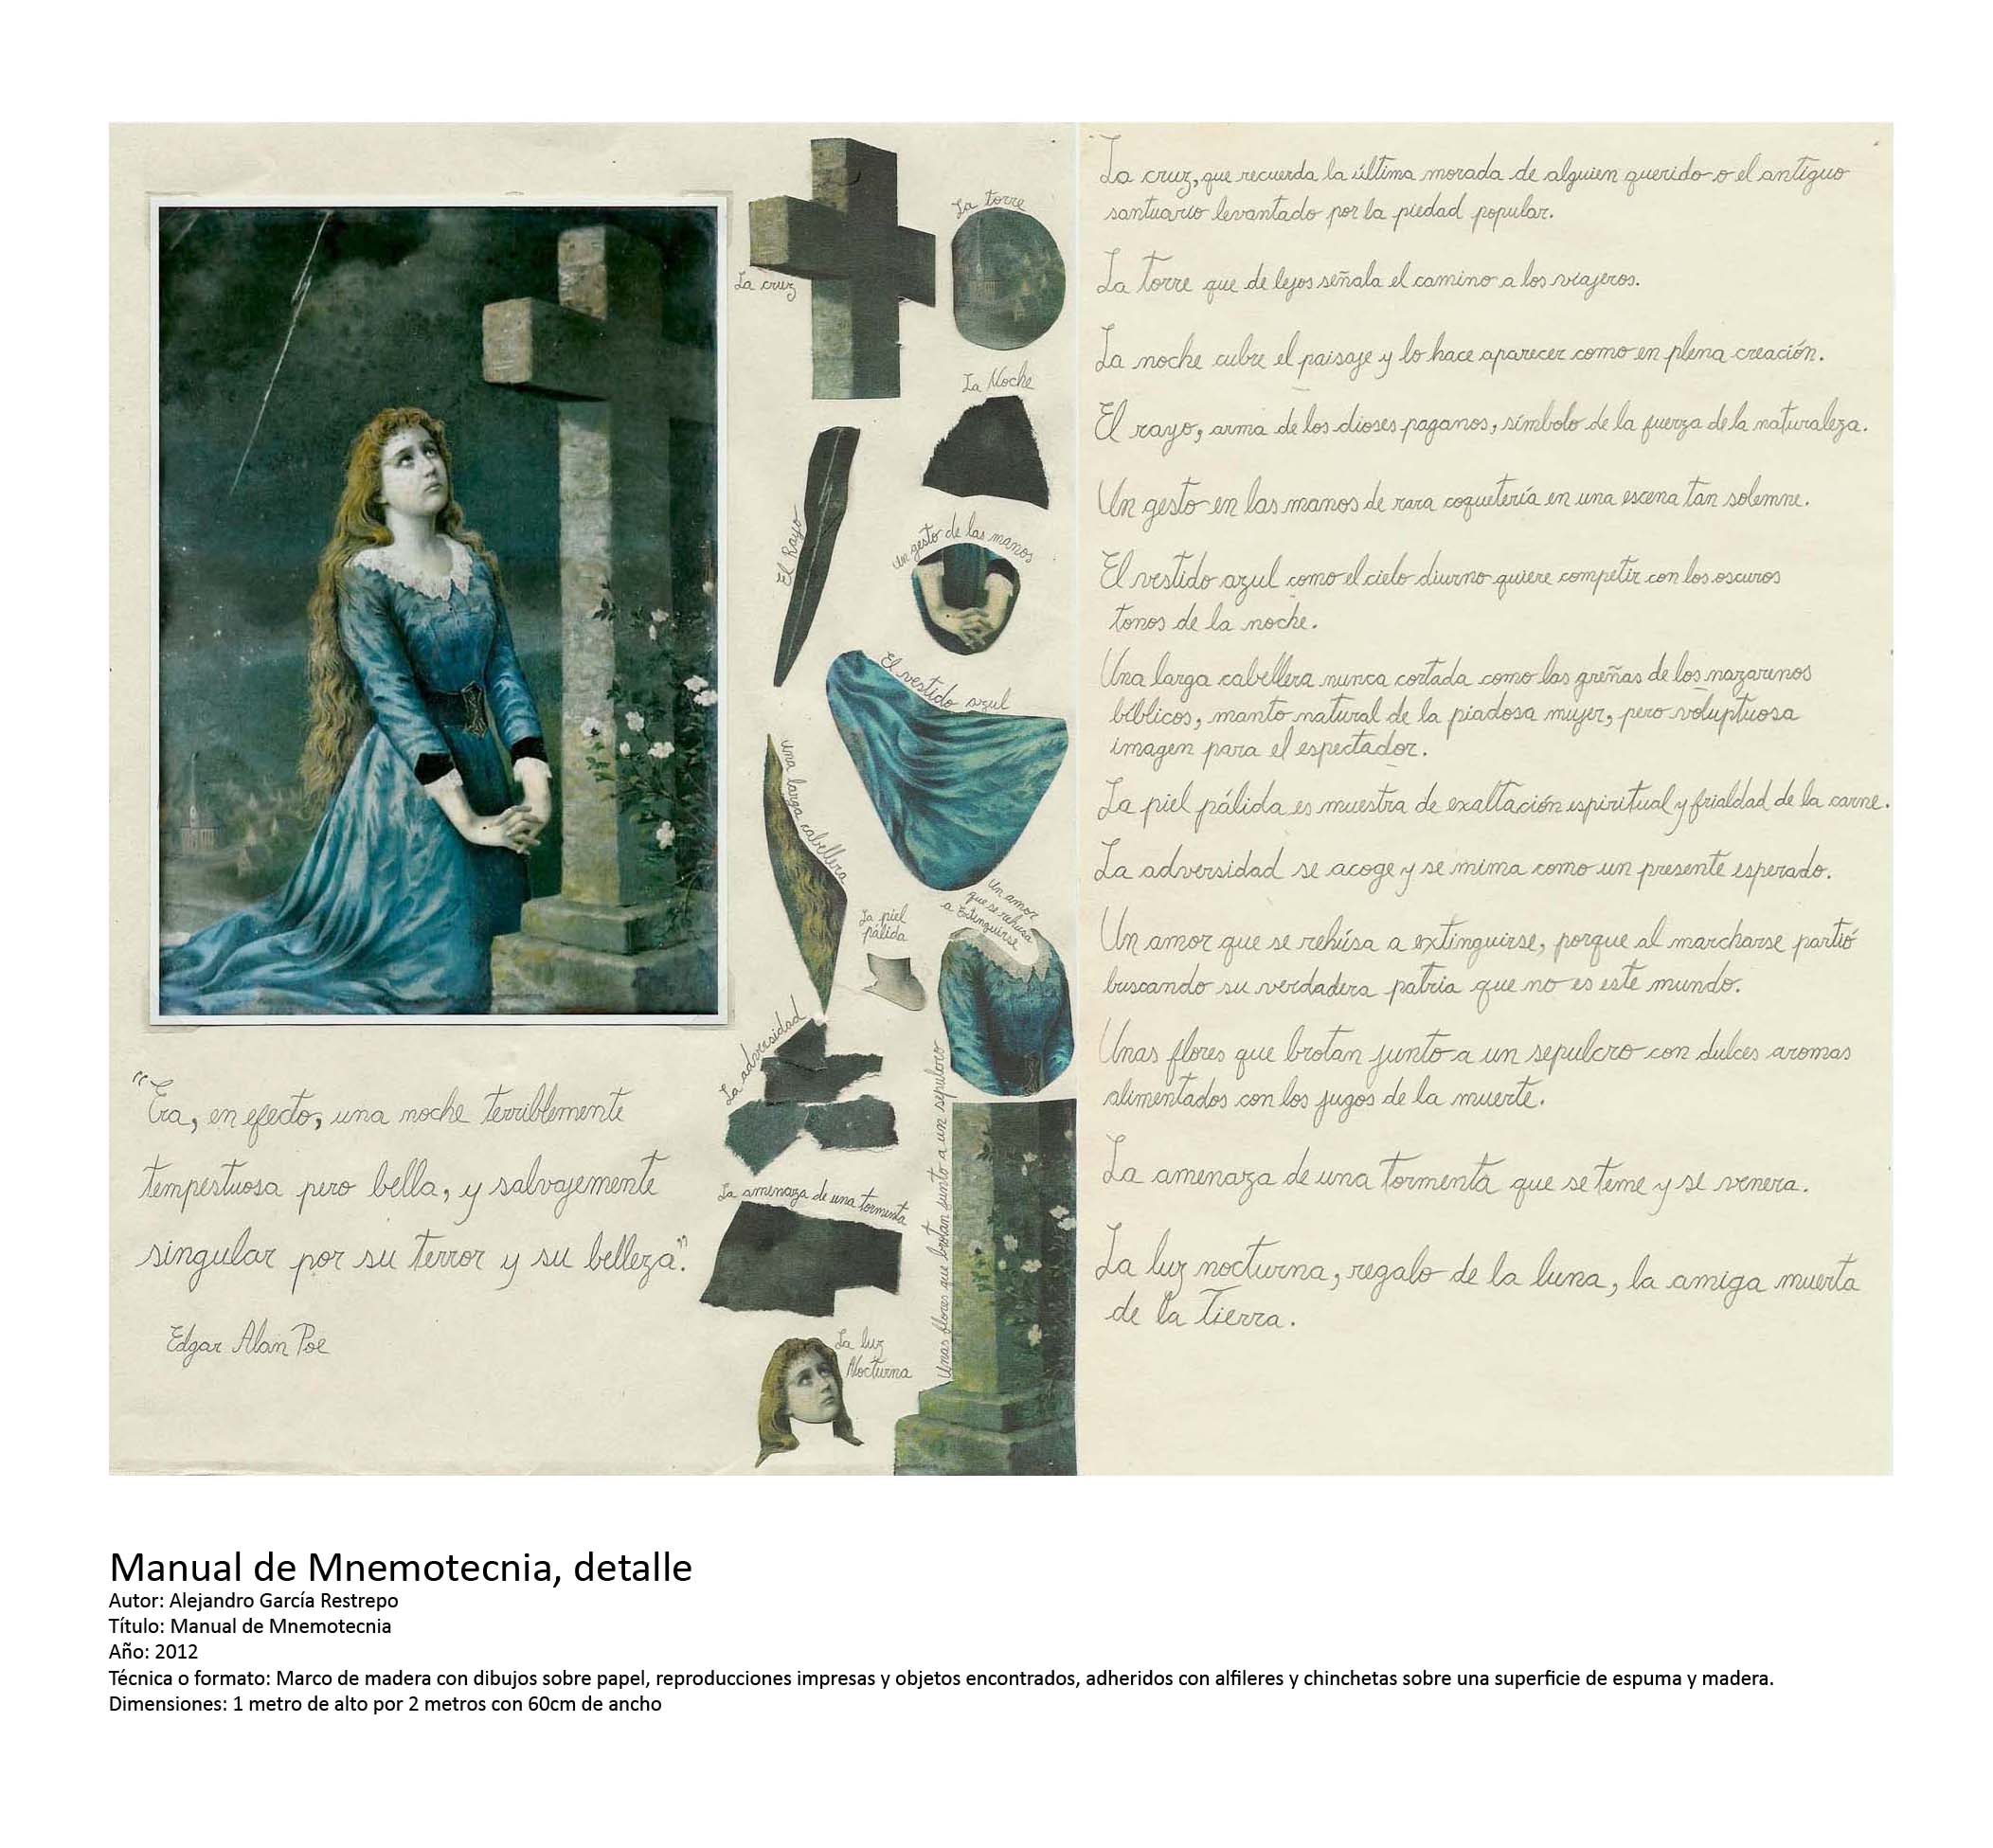 La cruz
La torre
La Noche
El Rayo
Un gesto de las manos
El vestido azul
una larga cabellera
La piel
pálida
Un amor
que se rehúsa
a extinguirse
La adversidad
Unas flores que brotan junto a un sepulcro
La amenaza de una tormenta
La luz
Nocturna
"Era, en efecto, una noche terriblemente
tempestuosa pero bella, y salvajemente
singular por su terror y su belleza".
Edgar Alan Poe
La cruz, que recuerda la última morada de alguien querido o el antiguo
santuario levantado por la piedad popular.
La torre que de lejos señala el camino a los viajeros.
La noche cubre el paisaje y lo hace aparecer como en plena creación.
El rayo, arma de los dioses paganos, símbolo de la fuerza de la naturaleza.
Un gesto en las manos de rara coquetería en una escena tan solemne.
El vestido azul como el cielo diurno quiere competir con los oscuros
tonos de la noche.
Una larga cabellera nunca cortada como las greñas de los nazarenos
bíblicos, manto natural de la piadosa mujer, pero voluptuosa
imagen para el espectador.
La piel pálida es muestra de exaltación espiritual y frialdad de la carne.
La adversidad se acoge y se mima como un presente esperado.
Un amor que se rehúsa a extinguirse, porque al marcharse partió
buscando su verdadera patria que no es este mundo.
Unas flores que brotan junto a un sepulcro con dulces aromas
alimentados con los jugos de la muerte.
La amenaza de una tormenta que se teme y se venera.
La luz nocturna, regalo de la luna, la amiga muerta
de la Tierra.
Manual de Mnemotecnia, detalle
Autor: Alejandro García Restrepo
Título: Manual de Mnemotecnia
Año: 2012
Técnica o formato: Marco de madera con dibujos sobre papel, reproducciones impresas y objetos encontrados, adheridos con alfileres y chinchetas sobre una superficie de espuma y madera.
Dimensiones: 1 metro de alto por 2 metros con 60cm de ancho